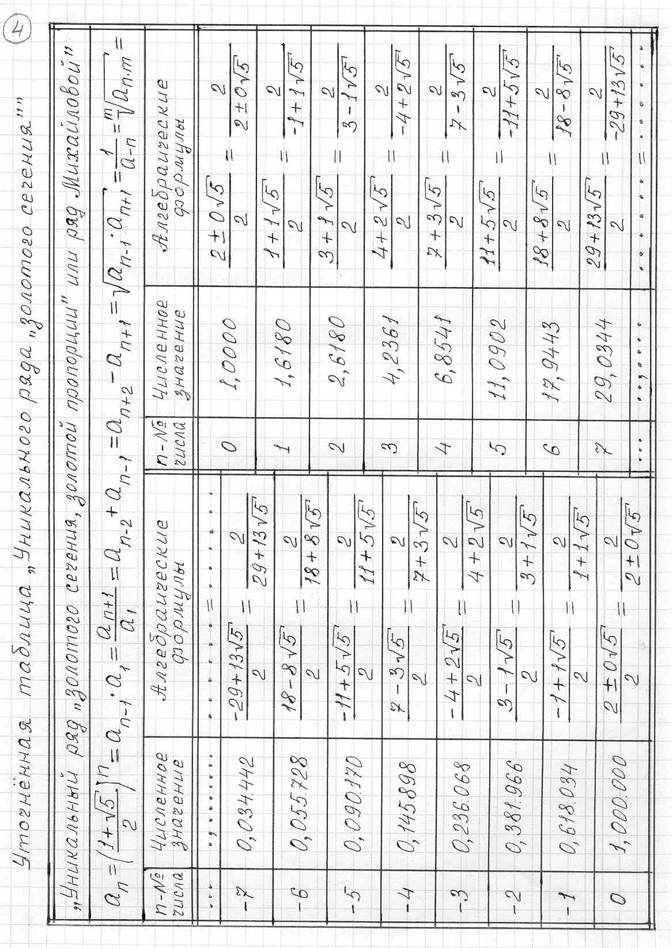 4
Уточнённая таблица „Уникального ряда „золотого сечения""
„Уникальный ряд „золотого сечения, золотой пропорции" или ряд Михайловой"
aₙ = ((1+√5)/2)ⁿ = aₙ₋₁ · a₁ = aₙ₊₁/a₁ = aₙ₋₂ + aₙ₋₁ = aₙ₊₂ − aₙ₊₁ = √(aₙ₋₁ · aₙ₊₁) = 1/a₋ₙ = ᵐ√(aₙ.ₘ) =
n-№ числа | Численное значение | Алгебраические формулы | n-№ числа | Численное значение | Алгебраические формулы
... | ..,...... | ........ = ........ | 0 | 1,0000 | (2±0√5)/2 = 2/(2±0√5)
-7 | 0,034.442 | (-29+13√5)/2 = 2/(29+13√5) | 1 | 1,6180 | (1+1√5)/2 = 2/(-1+1√5)
-6 | 0,055728 | (18-8√5)/2 = 2/(18+8√5) | 2 | 2,6180 | (3+1√5)/2 = 2/(3-1√5)
-5 | 0,090.170 | (-11+5√5)/2 = 2/(11+5√5) | 3 | 4,2361 | (4+2√5)/2 = 2/(-4+2√5)
-4 | 0,145.898 | (7-3√5)/2 = 2/(7+3√5) | 4 | 6,8541 | (7+3√5)/2 = 2/(7-3√5)
-3 | 0,236.068 | (-4+2√5)/2 = 2/(4+2√5) | 5 | 11,0902 | (11+5√5)/2 = 2/(-11+5√5)
-2 | 0,381.966 | (3-1√5)/2 = 2/(3+1√5) | 6 | 17,9443 | (18+8√5)/2 = 2/(18-8√5)
-1 | 0,618.034 | (-1+1√5)/2 = 2/(1+1√5) | 7 | 29,0344 | (29+13√5)/2 = 2/(-29+13√5)
0 | 1,000.000 | (2±0√5)/2 = 2/(2±0√5) | ... | ...,.... | ........ = ........